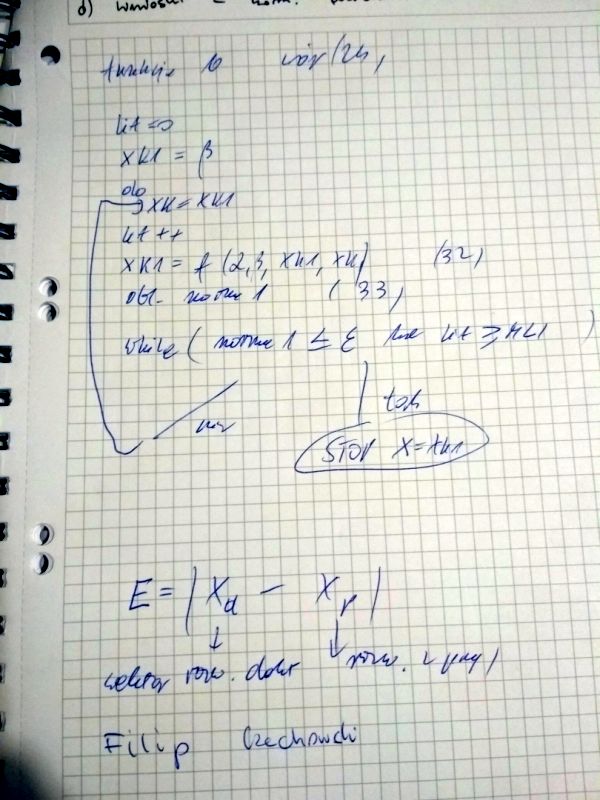 d)
Funkcja b
kit = 0
xk1 = β
do
xk = xk1
kit ++
xk1 = f (2,3, xk1, xk) (32)
obl. norma 1 (33)
while ( norma 1 ≤ ε lub kit ≥ )
tak
STOP X = xk1
E = | X_d - X_p |
wektor rozw. dokł rozw. z
Filip Czechowski